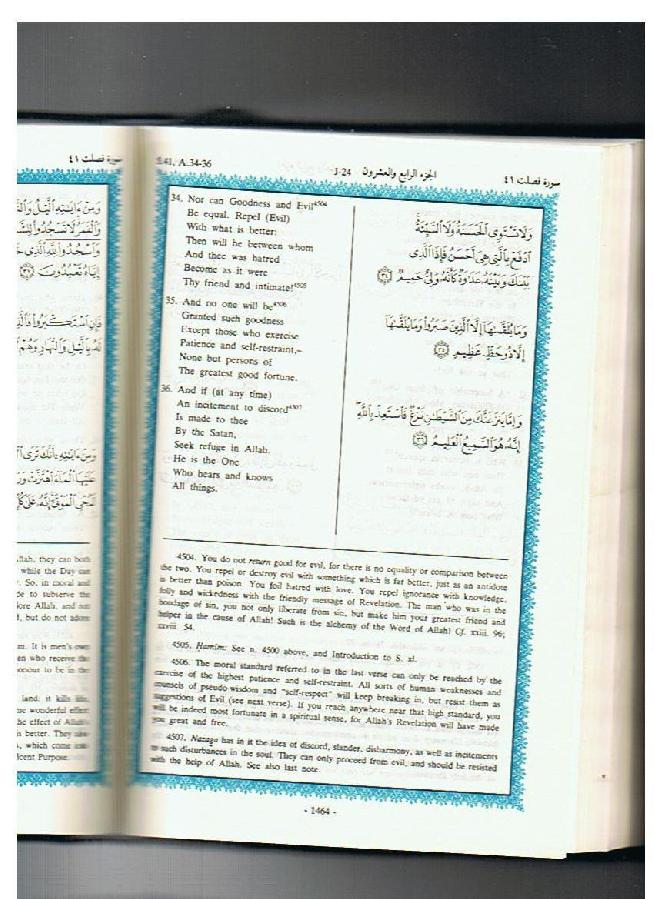 سورة فصلت ٤١
S.41, A.34-36
J-24
الجزء الرابع والعشرون
سورة فصلت ٤١
34. Nor can Goodness and Evil4504
Be equal. Repel (Evil)
With what is better:
Then will he between whom
And thee was hatred
Become as it were
Thy friend and intimate!4505
35. And no one will be4506
Granted such goodness
Except those who exercise
Patience and self-restraint,–
None but persons of
The greatest good fortune.
36. And if (at any time)
An incitement to discord4507
Is made to thee
By the Satan,
Seek refuge in Allah.
He is the One
Who hears and knows
All things.
وَلَا تَسْتَوِى ٱلْحَسَنَةُ وَلَا ٱلسَّيِّئَةُ
ٱدْفَعْ بِٱلَّتِى هِىَ أَحْسَنُ فَإِذَا ٱلَّذِى
بَيْنَكَ وَبَيْنَهُۥ عَدَٰوَةٌ كَأَنَّهُۥ وَلِىٌّ حَمِيمٌ ٣٤
وَمَا يُلَقَّىٰهَآ إِلَّا ٱلَّذِينَ صَبَرُوا۟ وَمَا يُلَقَّىٰهَآ
إِلَّا ذُو حَظٍّ عَظِيمٍ ٣٥
وَإِمَّا يَنزَغَنَّكَ مِنَ ٱلشَّيْطَٰنِ نَزْغٌ فَٱسْتَعِذْ بِٱللَّهِ
إِنَّهُۥ هُوَ ٱلسَّمِيعُ ٱلْعَلِيمُ ٣٦
4504. You do not return good for evil, for there is no equality or comparison between
the two. You repel or destroy evil with something which is far better, just as an antidote
is better than poison. You foil hatred with love. You repel ignorance with knowledge,
folly and wickedness with the friendly message of Revelation. The man who was in the
bondage of sin, you not only liberate from sin, but make him your greatest friend and
helper in the cause of Allah! Such is the alchemy of the Word of Allah! Cf. xxiii. 96;
xxviii. 54.
4505. Hamim: See n. 4500 above, and Introduction to S. xl.
4506. The moral standard referred to in the last verse can only be reached by the
exercise of the highest patience and self-restraint. All sorts of human weaknesses and
counsels of pseudo-wisdom and "self-respect" will keep breaking in, but resist them as
suggestions of Evil (see next verse). If you reach anywhere near that high standard, you
will be indeed most fortunate in a spiritual sense, for Allah's Revelation will have made
you great and free.
4507. Nazaga has in it the idea of discord, slander, disharmony, as well as incitements
to such disturbances in the soul. They can only proceed from evil, and should be resisted
with the help of Allah. See also last note.
- 1464 -
وَمِنْ ءَايَٰتِهِ ٱلَّيْلُ
وَٱسْجُدُوا۟ لِلَّهِ ٱلَّذِى
إِيَّاهُ تَعْبُدُونَ ٣٧
فَإِنِ ٱسْتَكْبَرُوا۟
لَهُۥ بِٱلَّيْلِ وَٱلنَّهَارِ وَهُمْ
وَمِنْ ءَايَٰتِهِۦٓ أَنَّكَ تَرَى
عَلَيْهَا ٱلْمَآءَ ٱهْتَزَّتْ
Allah, they can both
while the Day can
So, in moral and
to subserve the
Allah, and not
but do not adore
It is men's own
who receive the
to be in the
land: it kills life,
wonderful effect
effect of Allah's
better. They
which come
Purpose.